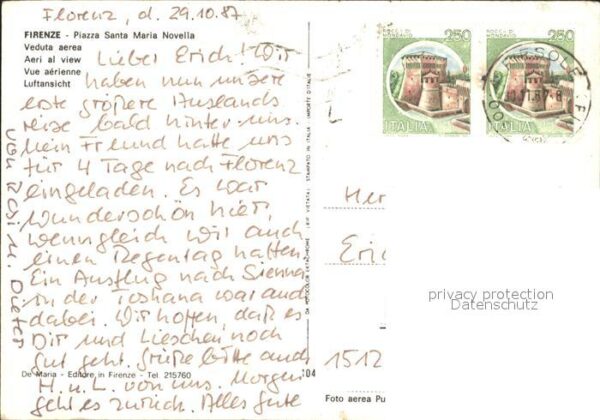 Florenz, d. 29.10.87
FIRENZE - Piazza Santa Maria Novella
Veduta aerea
Aeri al view
Vue aérienne
Luftansicht
Lieber Erich! Wir
haben nun unsere
erste größere Auslands
reise bald hinter uns.
Mein Freund hatte uns
für 4 Tage nach Florenz
eingeladen. Es war
wunderschön hier,
wenngleich wir auch
einen Regentag hatten.
Ein Ausflug nach Sienna
in der Toskana war auch
dabei. Wir hoffen, daß es
Dir und Lieschen noch
gut geht. Grüße bitte auch
H. u. L. von uns. Morgen
geht es zurück. Alles Gute
von Rosi u. Dieter
De Maria - Editore in Firenze - Tel 215760
104
STAMPATO IN ITALIA
IMPORTE D'ITALIE
250
ROCCA DI
MONDAVIO
ITALIA
250
ROCCA DI
MONDAVIO
ITALIA
Her
Eric
1512
Foto aerea Pu
privacy protection
Datenschutz